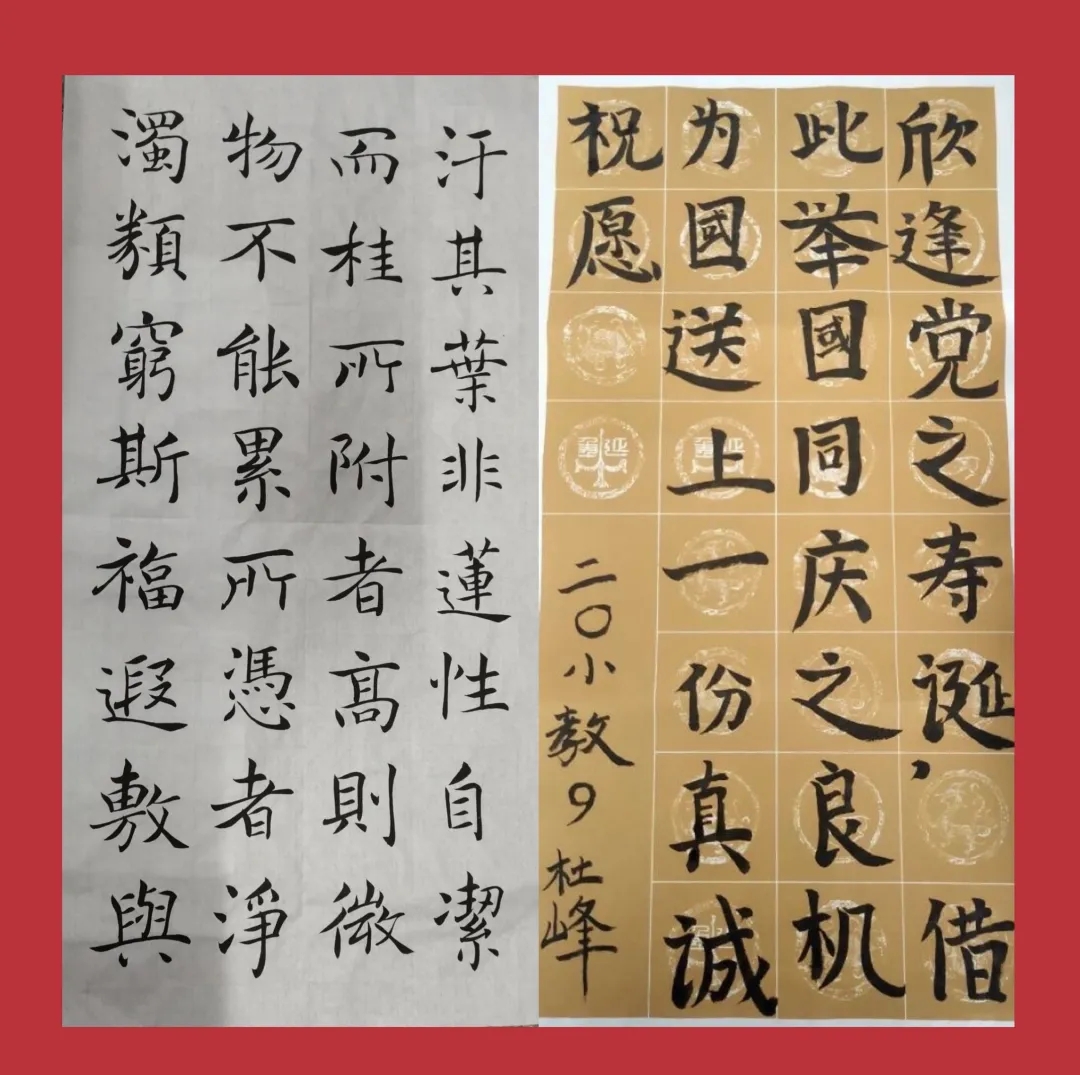 汙其葉非蓮性自潔
而桂所附者高則微
物不能累所憑者淨
濁類窮斯福遐敷與
欣逢党之寿诞，借
此举國同庆之良机
为國送上一份真诚
祝愿
二〇小教9 杜峰